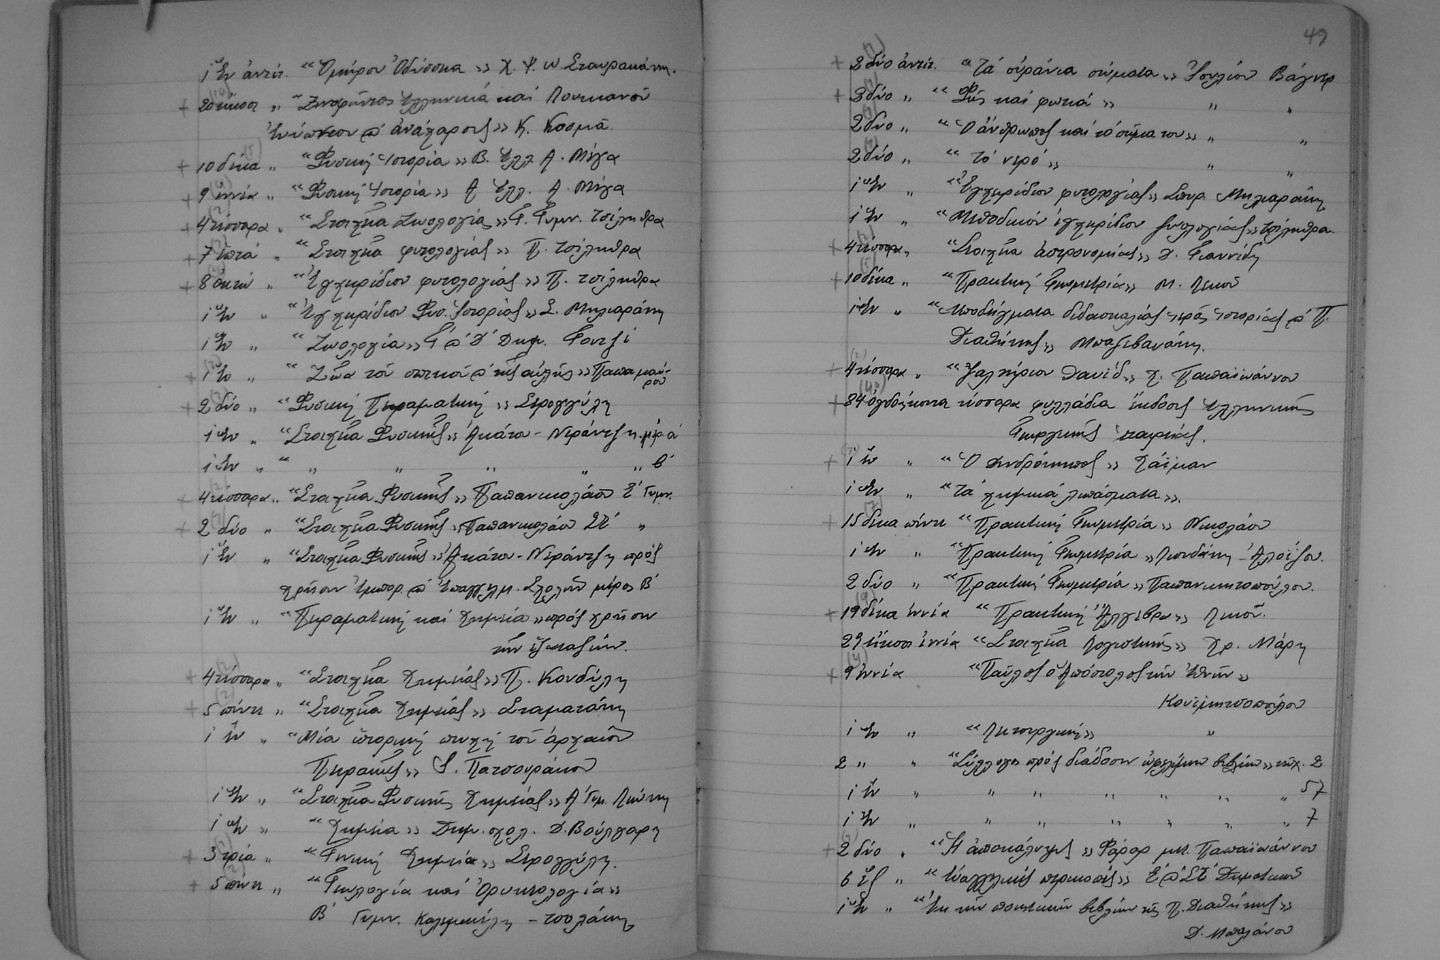 1 ἓν ἀντίτ. "Ὁμήρου Ὀδύσσεια" Χ. Ψ. ω Σταυρακάκη.
+ 20 εἴκοσι " "Ξενοφῶντος Ἑλληνικά καί Λουκιανοῦ
Ἐνύπνιον & ἀνάχαρσις" Κ. Κοσμᾶ.
+ 10 δέκα " "Φυσική Ἱστορία" Β. Ἑλλ Α. Μέγα
+ 9 ἐννέα " "Φυσική Ἱστορία" Α Ἑλλ. Α. Μέγα
+ 4 τέσσαρα " "Στοιχεῖα Ζωολογίας" Γυμν. Τσίληθρα
+ 7 ἑπτά " "Στοιχεῖα φυτολογίας" Π. Τσίληθρα
+ 8 ὀκτώ " "Ἐγχειρίδιον φυτολογίας" Π. Τσίληθρα
1 ἓν " "Ἐγχειρίδιον Φυσ. Ἱστορίας" Σ. Μηλιαράκη
1 ἓν " "Ζωολογία" Γ & Δ Δημ. Γοντζέ
+ 1 ἓν " "Ζῶα τοῦ σπιτιοῦ & τῆς αὐλῆς" Παπαμαύ-
ρου
+ 2 δύο " "Φυσική Πειραματική" Στρογγύλη
1 ἓν " "Στοιχεῖα Φυσικῆς" Ἀκάτου - Νεράντζη μέρ α'
1 ἓν " " " " " " " β'
+ 4 τέσσαρα " "Στοιχεῖα Φυσικῆς" Παπανικολάου Ε' Γυμν.
+ 2 δύο " "Στοιχεῖα Φυσικῆς" Παπανικολάου ΣΤ' "
1 ἓν " "Στοιχεῖα Φυσικῆς" Ἀκάτου - Νεράντζη πρός
χρῆσιν Ἐμπορ. & Ἐπαγγελμ. Σχολῶν μέρος Β'
1 ἓν " "Πειραματική καί Χημεία" πρός χρῆσιν
τῶν
+ 4 τέσσαρα " "Στοιχεῖα Χημείας" Π. Κονδύλη
+ 5 πέντε " "Στοιχεῖα Χημείας" Σταματάκη
1 ἓν " "Μία ἱστορική πτυχή τοῦ ἀρχαίου
Πειραιῶς" Πατσουράκου
1 ἓν " "Στοιχεῖα Φυσικῆς Χημείας" Α Γυμ.
1 ἓν " "Χημεία" Δημ. σχολ. Δ. Βούλγαρη
+ 3 τρία " "Γενική Χημεία" Στρογγύλη.
+ 5 πέντε " "Γεωλογία καί Ὀρυκτολογία"
Β' Γυμν. Καλεμκύλη - Τσολάκη
49
+ 2 δύο ἀντίτ. "Τά οὐράνια σώματα" Ἰουλίου Βάγνερ
+ 2 δύο " "Φῶς καί φωτιά" " "
2 δύο " "Ὁ ἄνθρωπος καί τό σῶμα του" " "
2 δύο " "Τό νερό" " "
1 ἓν " "Ἐγχειρίδιον φυτολογίας" Σπυρ. Μηλιαράκη
1 ἓν " "Μεθοδικόν ἐγχειρίδιον ζωολογίας" Τσίληθρα.
+ 4 τέσσαρα " "Στοιχεῖα ἀστρονομίας" Δ. Γιαννίδη
+ 10 δέκα " "Πρακτική Γεωμετρία" Μ. Λεκοῦ
1 ἓν " "Ὑποδείγματα διδασκαλίας ἱερᾶς ἱστορίας & Π.
Διαθήκης" Μπαξεβανάκη.
+ 4 τέσσαρα " "Ψαλτήριον Δαυΐδ" Χ. Παπαϊωάννου
+ 84 ὀγδοήκοντα τέσσαρα φυλλάδια ἐκδοσις Ἑλληνικῆς
Γεωργικῆς ἑταιρίας.
+ 1 ἓν " "Ὁ Δενδρόκηπος" Χάϊμαν
1 ἓν " "Τά χημικά λιπάσματα".
+ 15 δέκα πέντε "Πρακτική Γεωμετρία" Νικολάου
1 ἓν " "Πρακτική Γεωμετρία" Λιουδάκη - Ἀλοΐζου.
2 δύο " "Πρακτική Γεωμετρία" Παπανικητοπούλου.
+ 19 δέκα ἐννέα " "Πρακτική Ἄλγεβρα" Λεκοῦ.
29 εἴκοσι ἐννέα "Στοιχεῖα Λογιστικῆς" Χρ. Μάρη
+ 9 ἐννέα "Παῦλος ὁ Ἀπόστολος τῶν Ἐθνῶν"
Κουϊμουτσοπούλου
1 ἓν " "Λειτουργική" "
2 " " "Σύλλογος πρός διάδοσιν ὠφελίμων βιβλίων" τεῦχ. 2
1 ἓν " " " " " " " 57
1 ἓν " " " " " " " 7
+ 2 δύο " "Ἡ ἀποκάλυψις" Φάραρ μετ. Παπαϊωάννου
6 ἓξ " "Εὐαγγελικές περικοπές" Ε & ΣΤ Δημοτικοῦ
1 ἓν " "Ἐκ τῶν ποιητικῶν βιβλίων τῆς Π. Διαθήκης"
Δ. Μπαλάνου